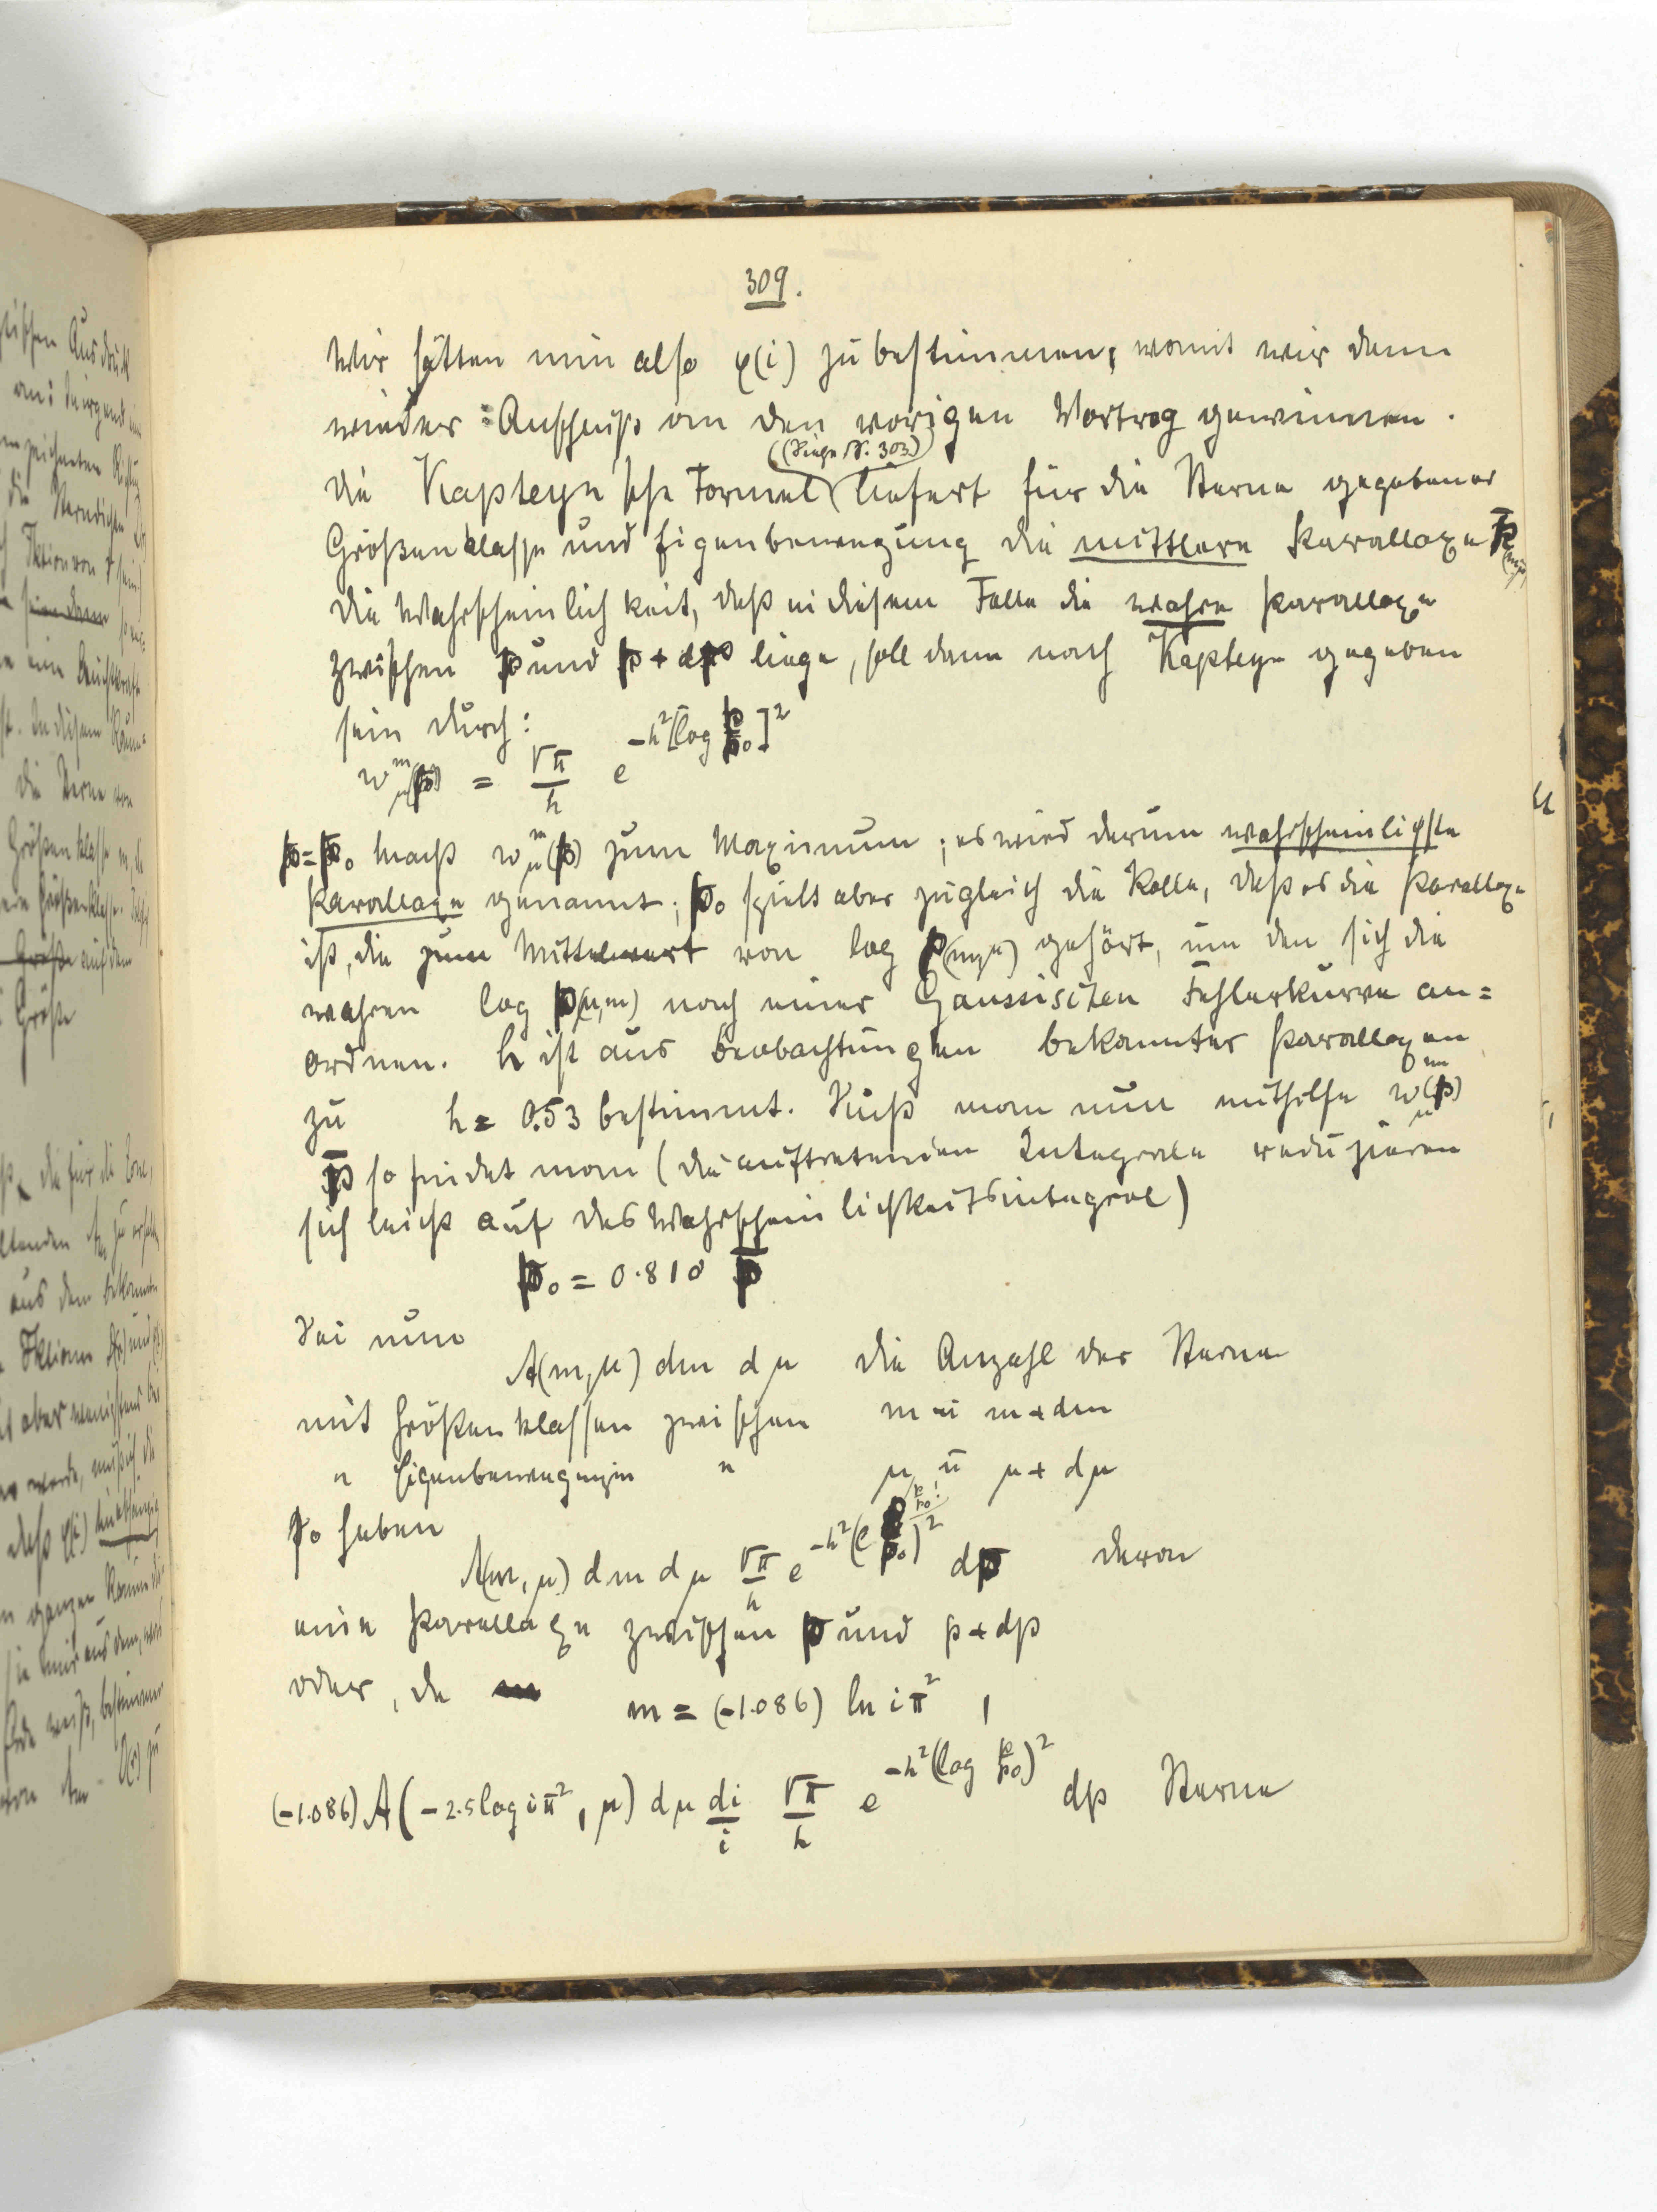 309.
Wir hätten nun also φ(i) zu bestimmen, womit wir dann
wieder Anschluß an den vorigen Vortrag gewinnen.
(Siehe S. 303)
Die Kapteyn'sche Formel liefert für die Sterne gegebener
Größenklasse und Eigenbewegung die mittlere Parallaxe p̄(m,μ)
Die Wahrscheinlichkeit, daß in diesem Falle die wahre Parallaxe
zwischen p und p + dp liege, soll dann nach Kapteyn gegeben
sein durch:
w^m_μ(p) = √π/h e^{-h²[log p/p₀]²}
p = p₀ macht w^m_μ(p) zum Maximum; es wird darum wahrscheinlichste
Parallaxe genannt; p₀ spielt aber zugleich die Rolle, daß es die Parallaxe
ist, die zum Mittelwert von log p(m,μ) gehört, um den sich die
wahren log p(μ,m) nach einer Gaussischen Fehlerkurve an=
ordnen. h ist aus Beobachtungen bekannter Parallaxen
zu h = 0.53 bestimmt. Sucht man nun mithilfe w^m_μ(p)
p̄ so findet man (die auftretenden Integrale reduzieren
sich leicht auf das Wahrscheinlichkeitsintegral)
p₀ = 0.810 p̄
Sei nun
A(m,μ) dm dμ die Anzahl der Sterne
mit Größenklassen zwischen m u m + dm
" Eigenbewegungen " μ u μ + dμ
So haben
A(m,μ) dm dμ √π/h e^{-h²(l p/p₀)²} dp davon
eine Parallaxe zwischen p und p + dp
oder, da m = (-1.086) ln i π²,
(-1.086) A(-2.5 log i π², μ) dμ di/i √π/h e^{-h²(log p/p₀)²} dp Sterne